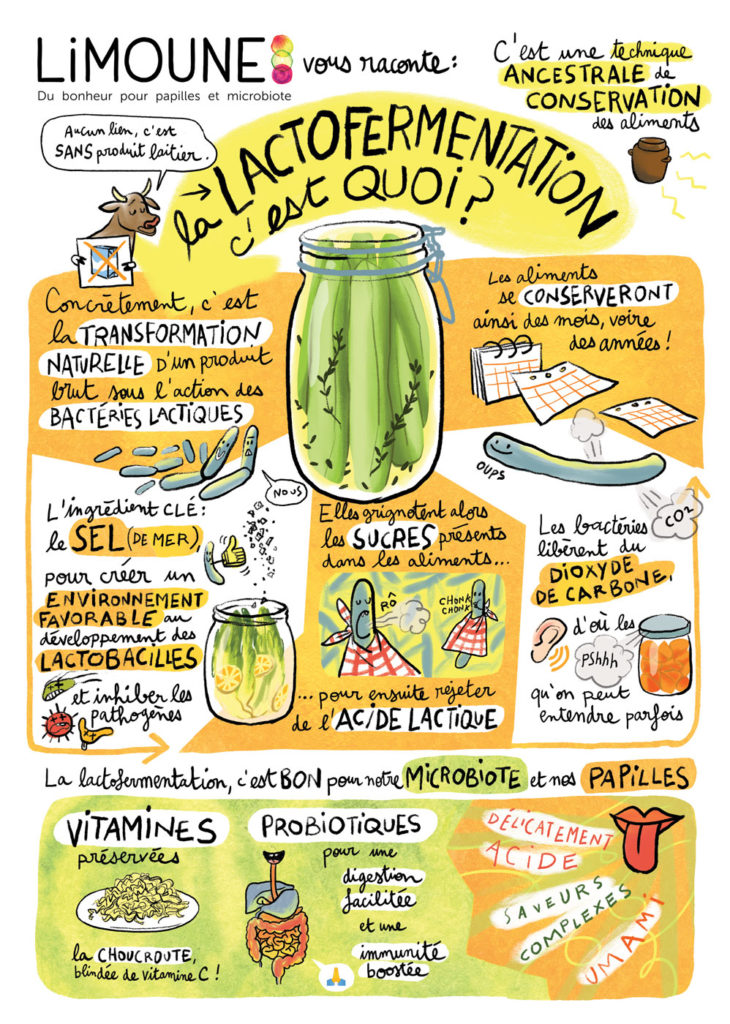 LiMOUNE
vous raconte :
Du bonheur pour papilles et microbiote
C'est une technique
ANCESTRALE de
CONSERVATION
des aliments
Aucun lien, c'est
SANS produit laitier.
la LACTOFERMENTATION
c'est QUOi ?
Concrètement, c'est
la TRANSFORMATION
NATURELLE D'un produit
brut sous l'action des
BACTÉRIES LACTIQUES
NOUS
Les aliments
se CONSERVERONT
ainsi des mois, voire
des années !
L'ingrédient CLÉ :
le SEL (DE MER),
pour créer un
ENVIRONNEMENT
FAVORABLE au
développement des
LACTOBACILLES
et inhiber les
pathogènes
Elles grignotent alors
les SUCRES présents
dans les aliments...
RÔ
CHONK
CHONK
... pour ensuite rejeter
de l'ACIDE LACTIQUE
OUPS
CO2
Les bactéries
libèrent du
DIOXYDE
DE CARBONE,
d'où les
PShhh
qu'on peut
entendre parfois
La lactofermentation, c'est BON pour notre MICROBIOTE et nos PAPILLES
VITAMINES
préservées
la CHOUCROUTE,
blindée de vitamine C !
PROBIOTIQUES
pour une
digestion
facilitée
et une
immunité
boostée
DÉLICATEMENT
ACIDE
SAVEURS
COMPLEXES
UMAMi